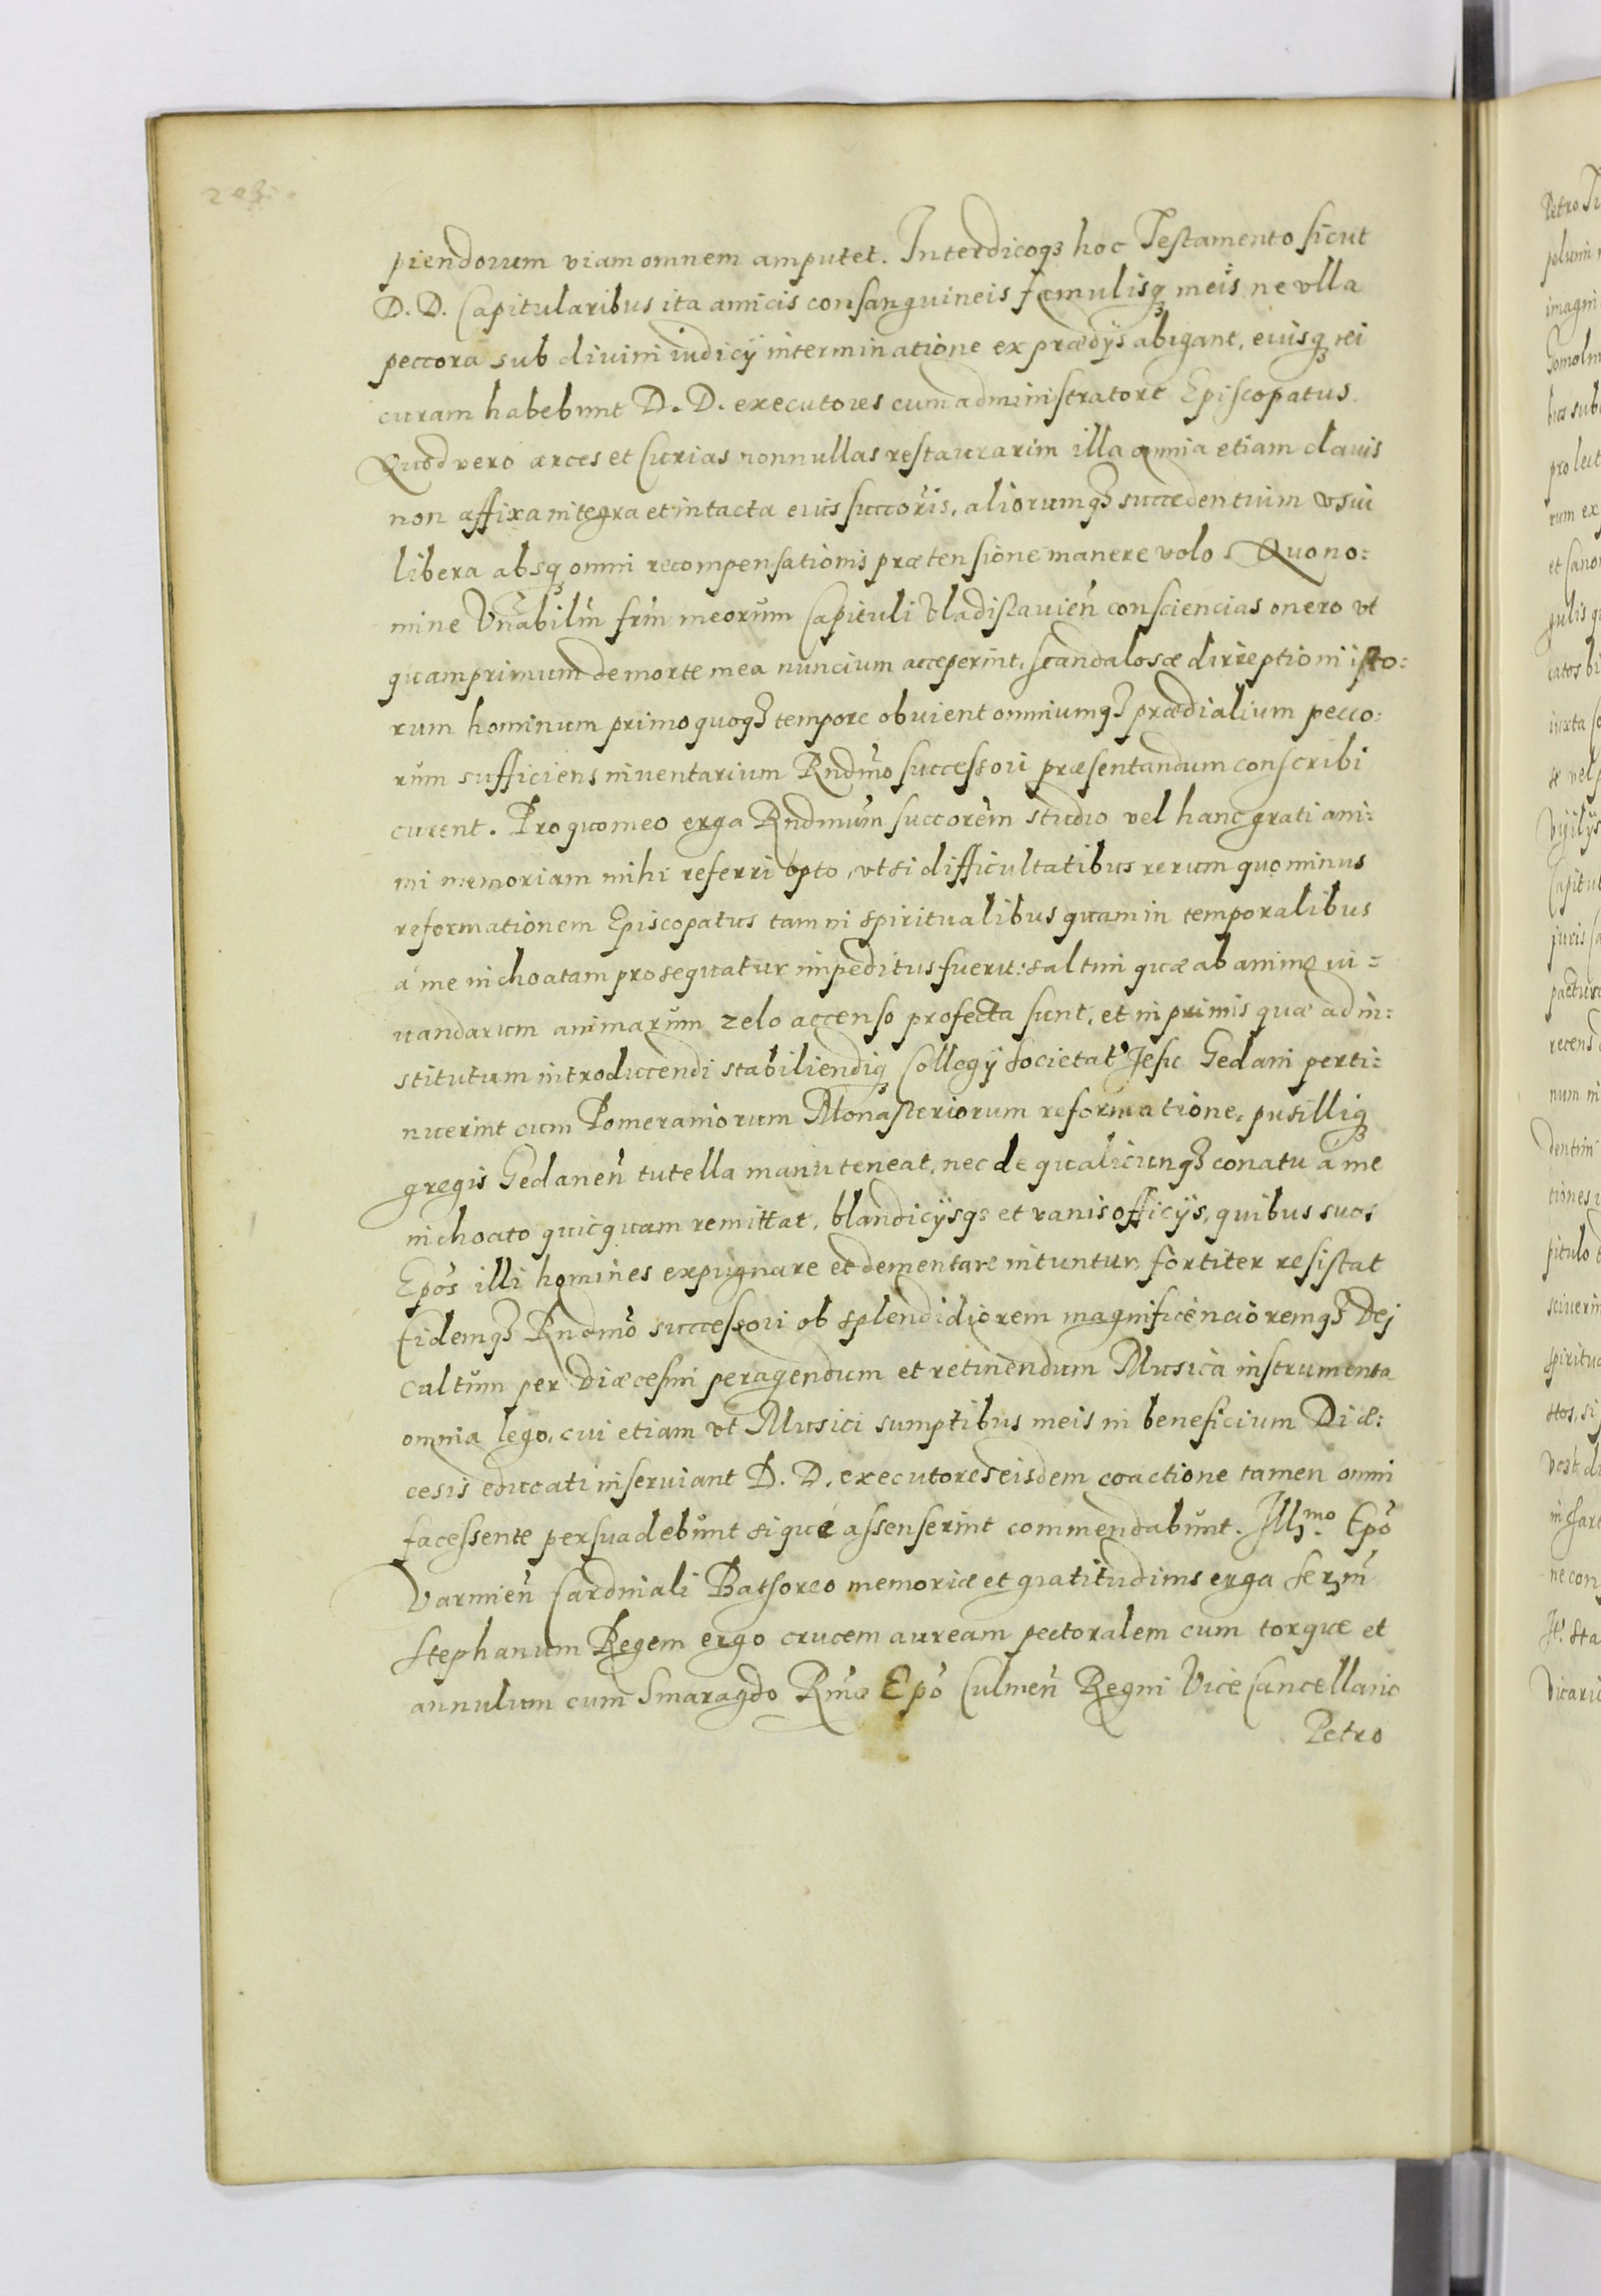 piendorum viam omnem amputet. Interdicoqз hoc Testamento sicut
D. D. Capitularibus ita amicis consanguineis famulisqз meis ne vlla
peccora sub divini iudicij interminatione ex prædijs abigant, eiusqз rei
curam habebunt D. D. executores cum administratore Episcopatus.
Quod vero arces et Curias nonnullas restaurarim illa omnia etiam clauis
non affixa integra et intacta eius succoris, aliorumqз succedentium vsui
libera absqз omni recompensationis prætensione manere volo. Quo no:
mine Vnabiliū frm̄ meorum Capituli Vladislavień consciencias onero vt
quamprimum de morte mea nuncium acceperint, scandalosæ dirreptioni isto:
rum hominum primo quoqз tempore obvient omniumqз prædialium pecco:
rum sufficiens inventarium Rndmo successori præsentandum conscribi
curent. Pro quo meo erga Rndmum succorem studio vel hanc grati ani:
mi memoriam mihi referri opto, vt si difficultatibus rerum quominus
reformationem Episcopatus tam in spiritualibus quam in temporalibus
a me inchoatam prosequatur impeditus fuerit: saltim quæ ab animo iu:
uandarum animarum zelo accenso profecta sunt, et in primis quæ ad in:
stitutum introducendi stabiliendiqз Collegij Societat' Jesu Gedani perti:
nuerint cum Pomeraniorum Monasteriorum reformatione, pusilliqз
gregis Gedaneń tutella manu teneat, nec de qualicunqз conatu a me
inchoato quicquam remittat, blandicijsqз et vanis officijs, quibus suos
Epōs illi homines expugnare et dementare nituntur, fortiter resistat
Eidemqз Rndmo successori ob splendidiorem magnificencioremqз Dej
cultum per Diæcesim peragendum et retinendum Musica instrumenta
omnia lego, cui etiam vt Musici sumptibus meis in beneficium Diæ:
cesis educati inserviant D. D. executores eisdem coactione tamen omni
facessente persuadebunt sique assenserint commendabunt. Illmo. Epō
Varmień Cardinali Batsoreo memoriæ et gratitudinis erga Serm̄
Stephanum Regem ergo crucem auream pectoralem cum torque et
annulum cum Smaragdo Rmo Epō Culmeń Regni Vice Cancellario
Petro